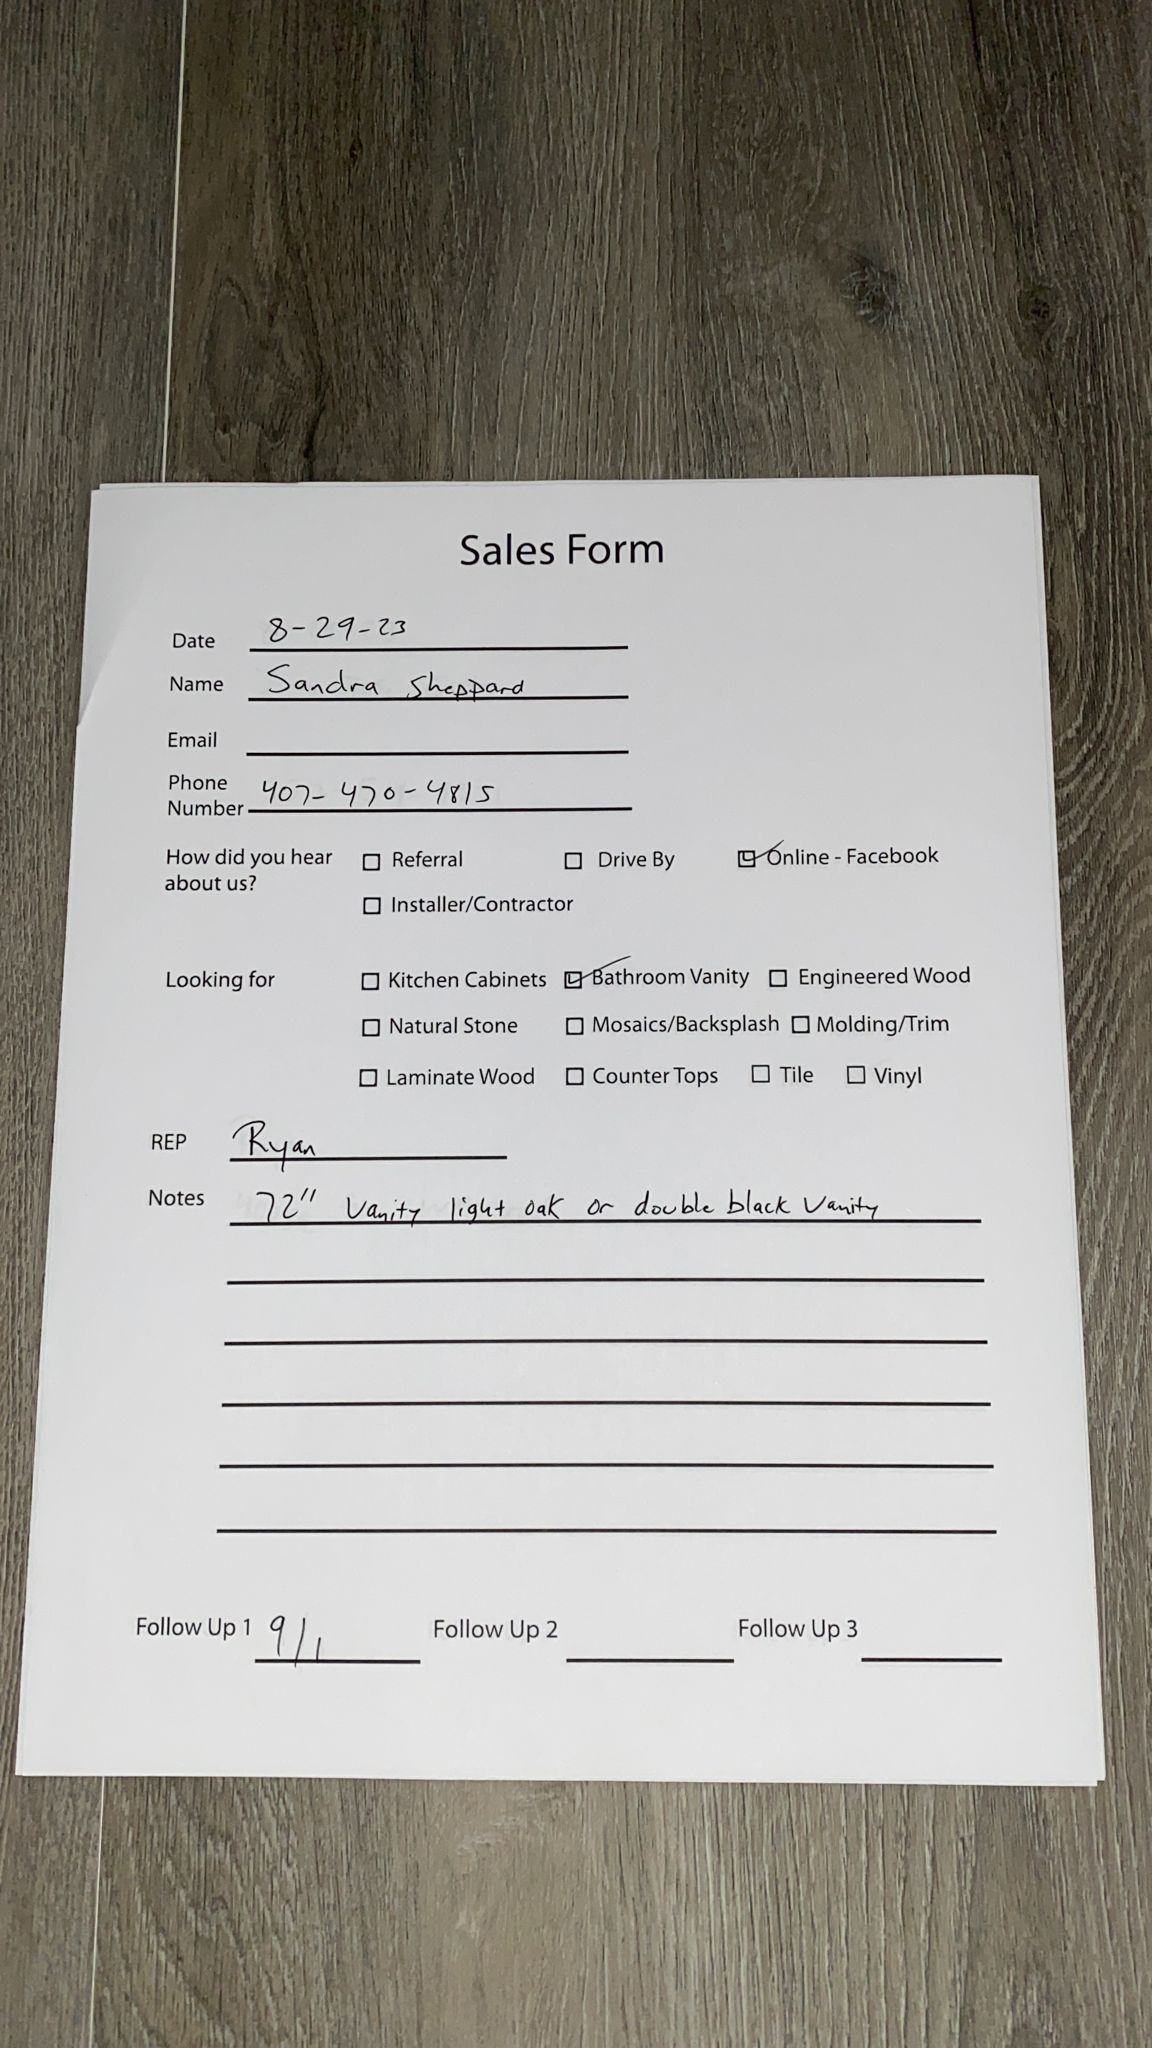 Sales Form
Date 8-29-23
Name Sandra Sheppard
Email
Phone
Number 407-470-4815
How did you hear ☐ Referral ☐ Drive By ☑ Online - Facebook
about us?
☐ Installer/Contractor
Looking for ☐ Kitchen Cabinets ☑ Bathroom Vanity ☐ Engineered Wood
☐ Natural Stone ☐ Mosaics/Backsplash ☐ Molding/Trim
☐ Laminate Wood ☐ Counter Tops ☐ Tile ☐ Vinyl
REP Ryan
Notes 72" Vanity light oak or double black Vanity
Follow Up 1 9/1 Follow Up 2 Follow Up 3